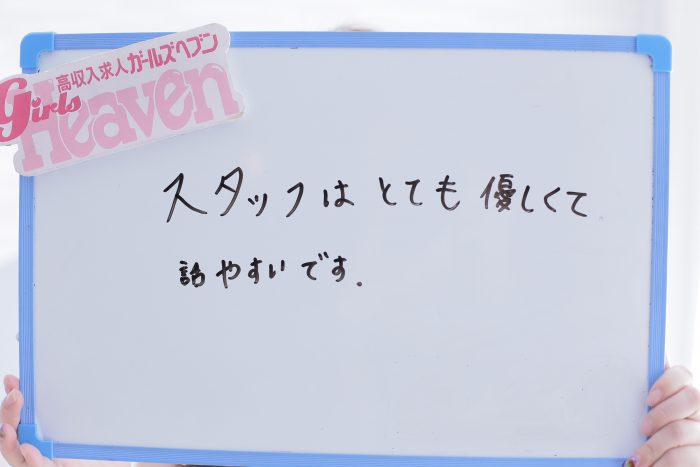 高収入求人ガールズヘブン
Girls
Heaven
スタッフは とても 優しくて
話やすいです.